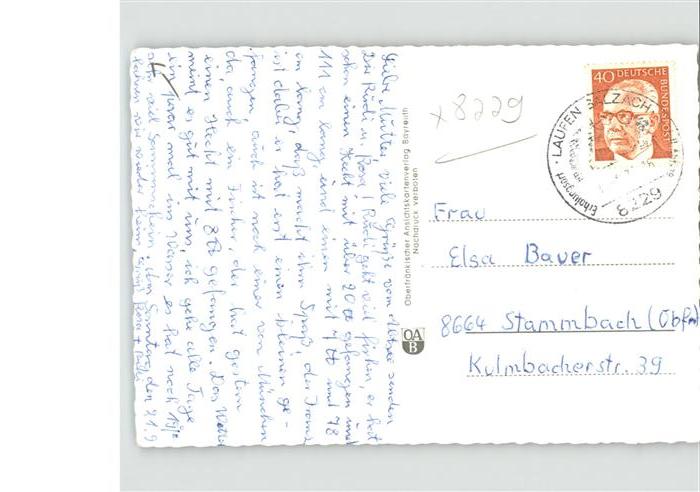 Liebe Mutter viele Grüße vom Abtsee senden
Dir Rudi u. Rosa! Rudi geht viel fischen, er hat
schon einen Hecht mit über 20 ℔ gefangen und
111 cm lang und einen mit 4 ℔ und 78
cm lang, das macht ihm Spaß, der Franz
ist dabei, er hat erst einen kleinen ge-
fangen auch ist noch einer von München
da, auch ein Fischer, der hat gestern
einen Hecht mit 8 ℔ gefangen. Das Wetter
meint es gut mit uns, ich gehe alle Tage
ein paar mal ins Wasser es hat noch 19°
also viel Sonnenschein. Am Samstag den 21.9
fahren wir wieder heim, Rosa + Rudi
Oberfränkischer Ansichtskartenverlag Bayreuth
Nachdruck verboten
OA
B
x 8229
40 DEUTSCHE
BUNDESPOST
LAUFEN SALZACH
Erholungsort
8229
Frau
Elsa Bauer
8664 Stammbach (Obfr)
Kulmbacherstr. 39